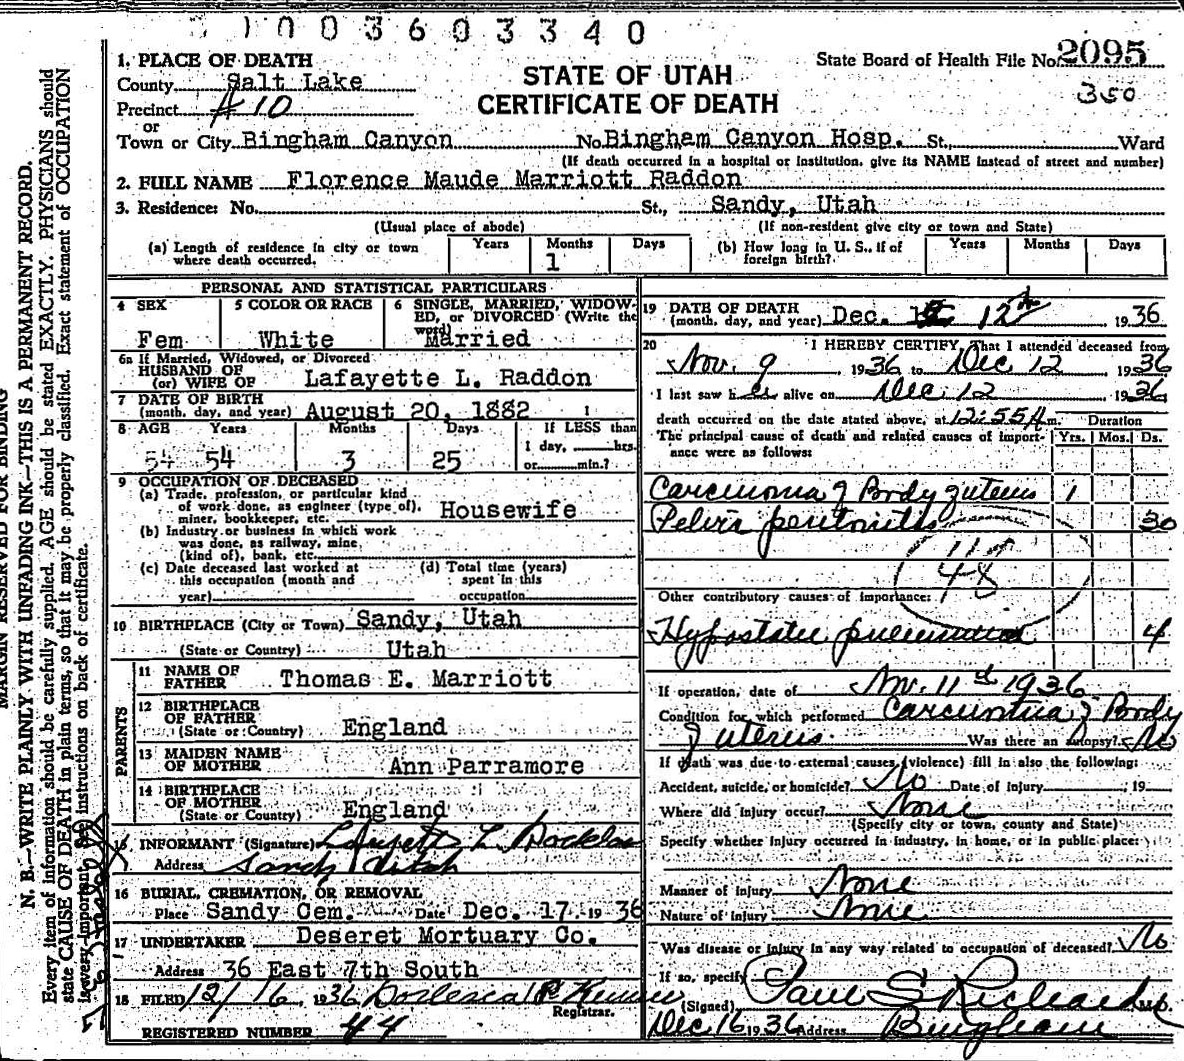 1003603340
State Board of Health File No. 2095
350
STATE OF UTAH
CERTIFICATE OF DEATH
1. PLACE OF DEATH
County Salt Lake
Precinct #10
or
Town or City Bingham Canyon No. Bingham Canyon Hosp. St., Ward
(If death occurred in a hospital or institution, give its NAME instead of street and number)
2. FULL NAME Florence Maude Marriott Raddon
3. Residence: No. St., Sandy, Utah
(Usual place of abode) (If non-resident give city or town and State)
(a) Length of residence in city or town where death occurred. Years Months 1 Days
(b) How long in U. S., if of foreign birth? Years Months Days
PERSONAL AND STATISTICAL PARTICULARS
4 SEX Fem
5 COLOR OR RACE White
6 SINGLE, MARRIED, WIDOWED, or DIVORCED (Write the word) Married
6a If Married, Widowed, or Divorced
HUSBAND OF
(or) WIFE OF Lafayette L. Raddon
7 DATE OF BIRTH
(month, day, and year) August 20, 1882
8 AGE Years 54 54 Months 3 Days 25 If LESS than 1 day, hrs. or min.?
9 OCCUPATION OF DECEASED
(a) Trade, profession, or particular kind of work done, as engineer (type of), miner, bookkeeper, etc. Housewife
(b) Industry or business in which work was done, as railway, mine, (kind of), bank, etc.
(c) Date deceased last worked at this occupation (month and year)
(d) Total time (years) spent in this occupation
10 BIRTHPLACE (City or Town) Sandy, Utah
(State or Country) Utah
PARENTS
11 NAME OF FATHER Thomas E. Marriott
12 BIRTHPLACE OF FATHER
(State or Country) England
13 MAIDEN NAME OF MOTHER Ann Parramore
14 BIRTHPLACE OF MOTHER
(State or Country) England
15 INFORMANT (Signature) L.
Address Sandy Utah
16 BURIAL, CREMATION, OR REMOVAL
Place Sandy Cem. Date Dec. 17 1936
17 UNDERTAKER Deseret Mortuary Co.
Address 36 East 7th South
18 FILED 12/16, 1936
Registrar.
REGISTERED NUMBER 44
19 DATE OF DEATH
(month, day, and year) Dec. 12th 1936
20 I HEREBY CERTIFY, That I attended deceased from
Nov. 9, 1936 to Dec 12 1936
I last saw her alive on Dec. 12 1936
death occurred on the date stated above, at 12:55 A m. Duration
The principal cause of death and related causes of importance were as follows: Yrs. Mos. Ds.
Carcinoma of Body of uterus 1
Pelvis peritonitis 30
48
Other contributory causes of importance:
Hypostatic pneumonia 4
If operation, date of Nov. 11th 1936
Condition for which performed Carcinoma of Body
of uterus. Was there an autopsy? No
If death was due to external causes (violence) fill in also the following:
Accident, suicide, or homicide? No Date of injury 19
Where did injury occur? None
(Specify city or town, county and State)
Specify whether injury occurred in industry, in home, or in public place:
Manner of injury None
Nature of injury None
Was disease or injury in any way related to occupation of deceased? No
If so, specify
(Signed) Paul S Richards M.D.
Dec 16 1936 Address Bingham
MARGIN RESERVED FOR BINDING
N. B.—WRITE PLAINLY WITH UNFADING INK—THIS IS A PERMANENT RECORD.
Every item of information should be carefully supplied. AGE should be stated EXACTLY. PHYSICIANS should
state CAUSE OF DEATH in plain terms, so that it may be properly classified. Exact statement of OCCUPATION
is very important. See instructions on back of certificate.